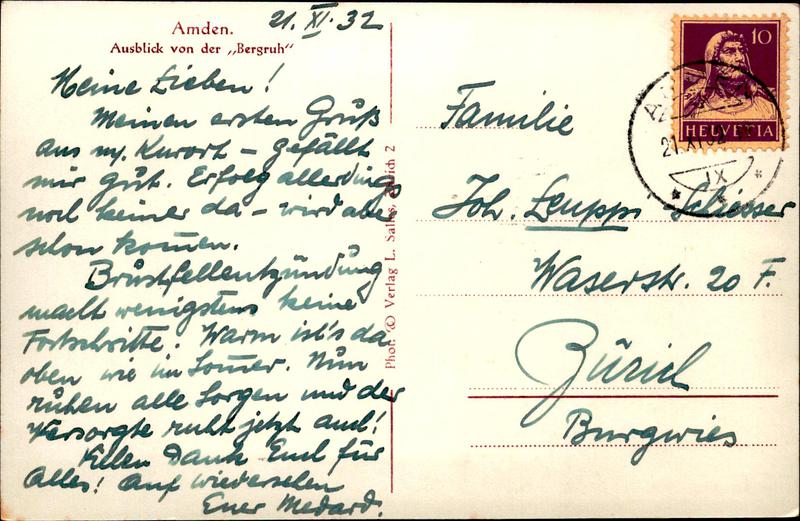 21. XI. 32
Amden.
Ausblick von der „Bergruh"
Meine Lieben!
Meinen ersten Gruß
aus m/. Kurort – gefällt
mir gut. Erfolg allerdings
noch keiner da – wird aber
schon kommen.
Brustfellentzündung
macht wenigstens keine
Fortschritte. Warm ist's da
oben wie im Sommer. Nun
ruhen alle Sorgen und der
Versorgte ruht jetzt auch!
Vielen Dank Emil für
Alles! Auf wiedersehen
Euer Medard.
Phot. © Verlag L. Zürich 2
10
HELVETIA
21.XI.32
IX
Familie
Joh. Leupp-Schiesser
Waserstr. 20 F.
Zürich
Burgwies